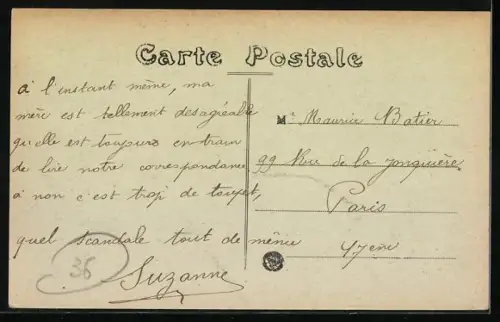 Carte Postale
à l'instant même, ma
mère est tellement desagréable
qu'elle est toujours en train
de lire notre correspondance
à non c'est trop de toupet,
quel scandale tout de même
Suzanne
36
Mr Maurice Batier
99 Rue de la Jonquière
Paris
17eme